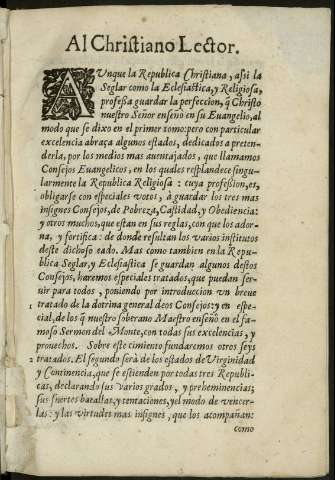 Al Chriſtiano Lector.
AVnque la Republica Chriſtiana, aſsi la
Seglar como la Ecleſiaſtica, y Religioſa,
profeſſa guardar la perfeccion, q̃ Chriſto
nueſtro Señor enſeñò en ſu Euangelio, al
modo que ſe dixo en el primer tomo: pero con particular
excelencia abraça algunos eſtados, dedicados a preten-
derla, por los medios mas auentajados, que llamamos
Conſejos Euangelicos, en los quales reſplandece ſingu-
larmente la Republica Religioſa: cuya profeſsion, es,
obligarſe con eſpeciales votos, à guardar los tres mas
inſignes Conſejos, de Pobreza, Caſtidad, y Obediencia:
y otros muchos, que eſtan en ſus reglas, con que los ador-
na, y fortifica: de donde reſultan los varios inſtitutos
deſte dichoſo eſtado. Mas como tambien en la Repu-
blica Seglar, y Ecleſiaſtica ſe guardan algunos deſtos
Conſejos, haremos eſpeciales tratados, que puedan ſer-
uir para todos, poniendo por introduccion vn breue
tratado de la dotrina general deos Conſejos: y en eſpe-
cial, de los q̃ nueſtro ſoberano Maeſtro enſeñò en el fa-
moſo Sermon del Monte, con todas ſus excelencias, y
prouechos. Sobre eſte cimiento fundaremos otros ſeys
tratados. El ſegundo ſerà de los eſtados de Virginidad
y Continencia, que ſe eſtienden por todas tres Republi-
cas, declarando ſus varios grados, y preheminencias;
ſus fuertes batallas, y tentaciones, y el modo de vencer-
las: y las virtudes mas inſignes, que los acompañan:
como